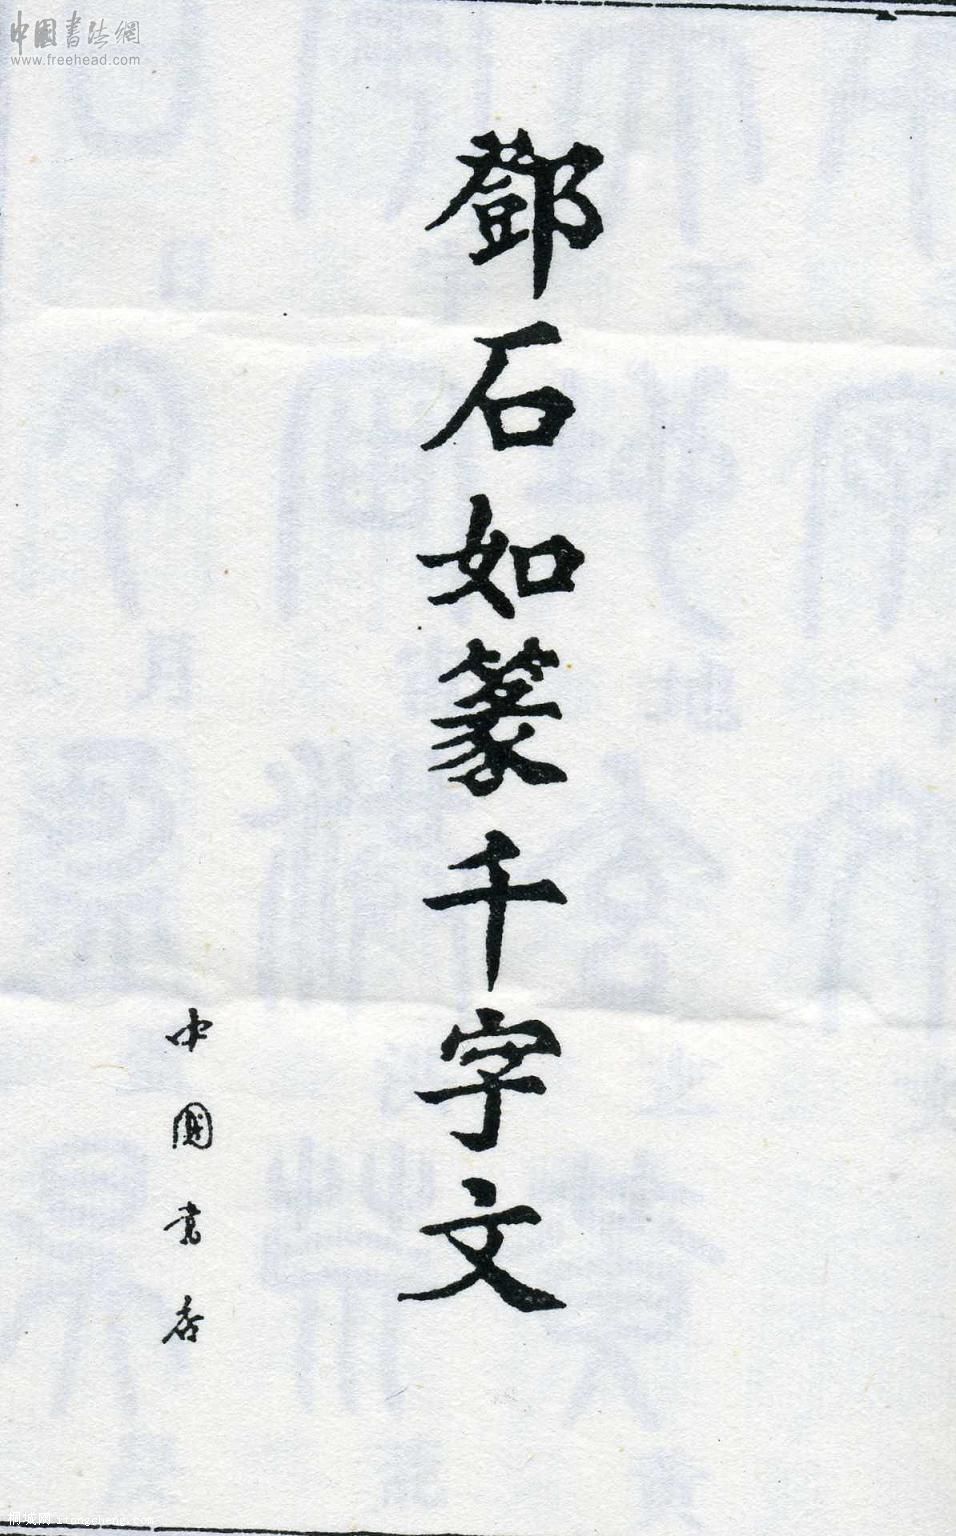 中国书法網
www.freehead.com
鄧石如篆千字文
中國書店